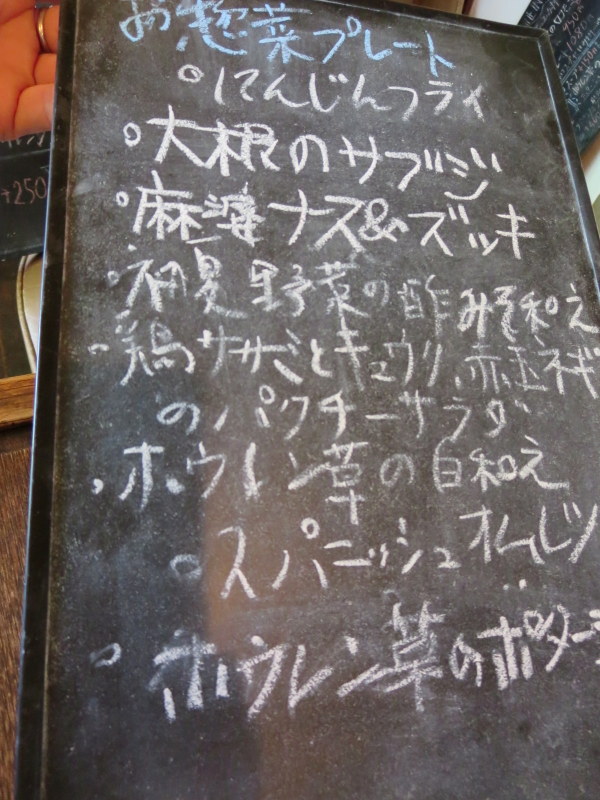 お惣菜プレート
○にんじんフライ
○大根のサブジ
○麻婆ナス&ズッキ
野菜の酢みそ和え
・鶏ササミとキュウリ、赤玉ネギ
のパクチーサラダ
、ホウレン草の白和え
○スパニッシュオムレツ
○ホウレン草のポタージ
+250